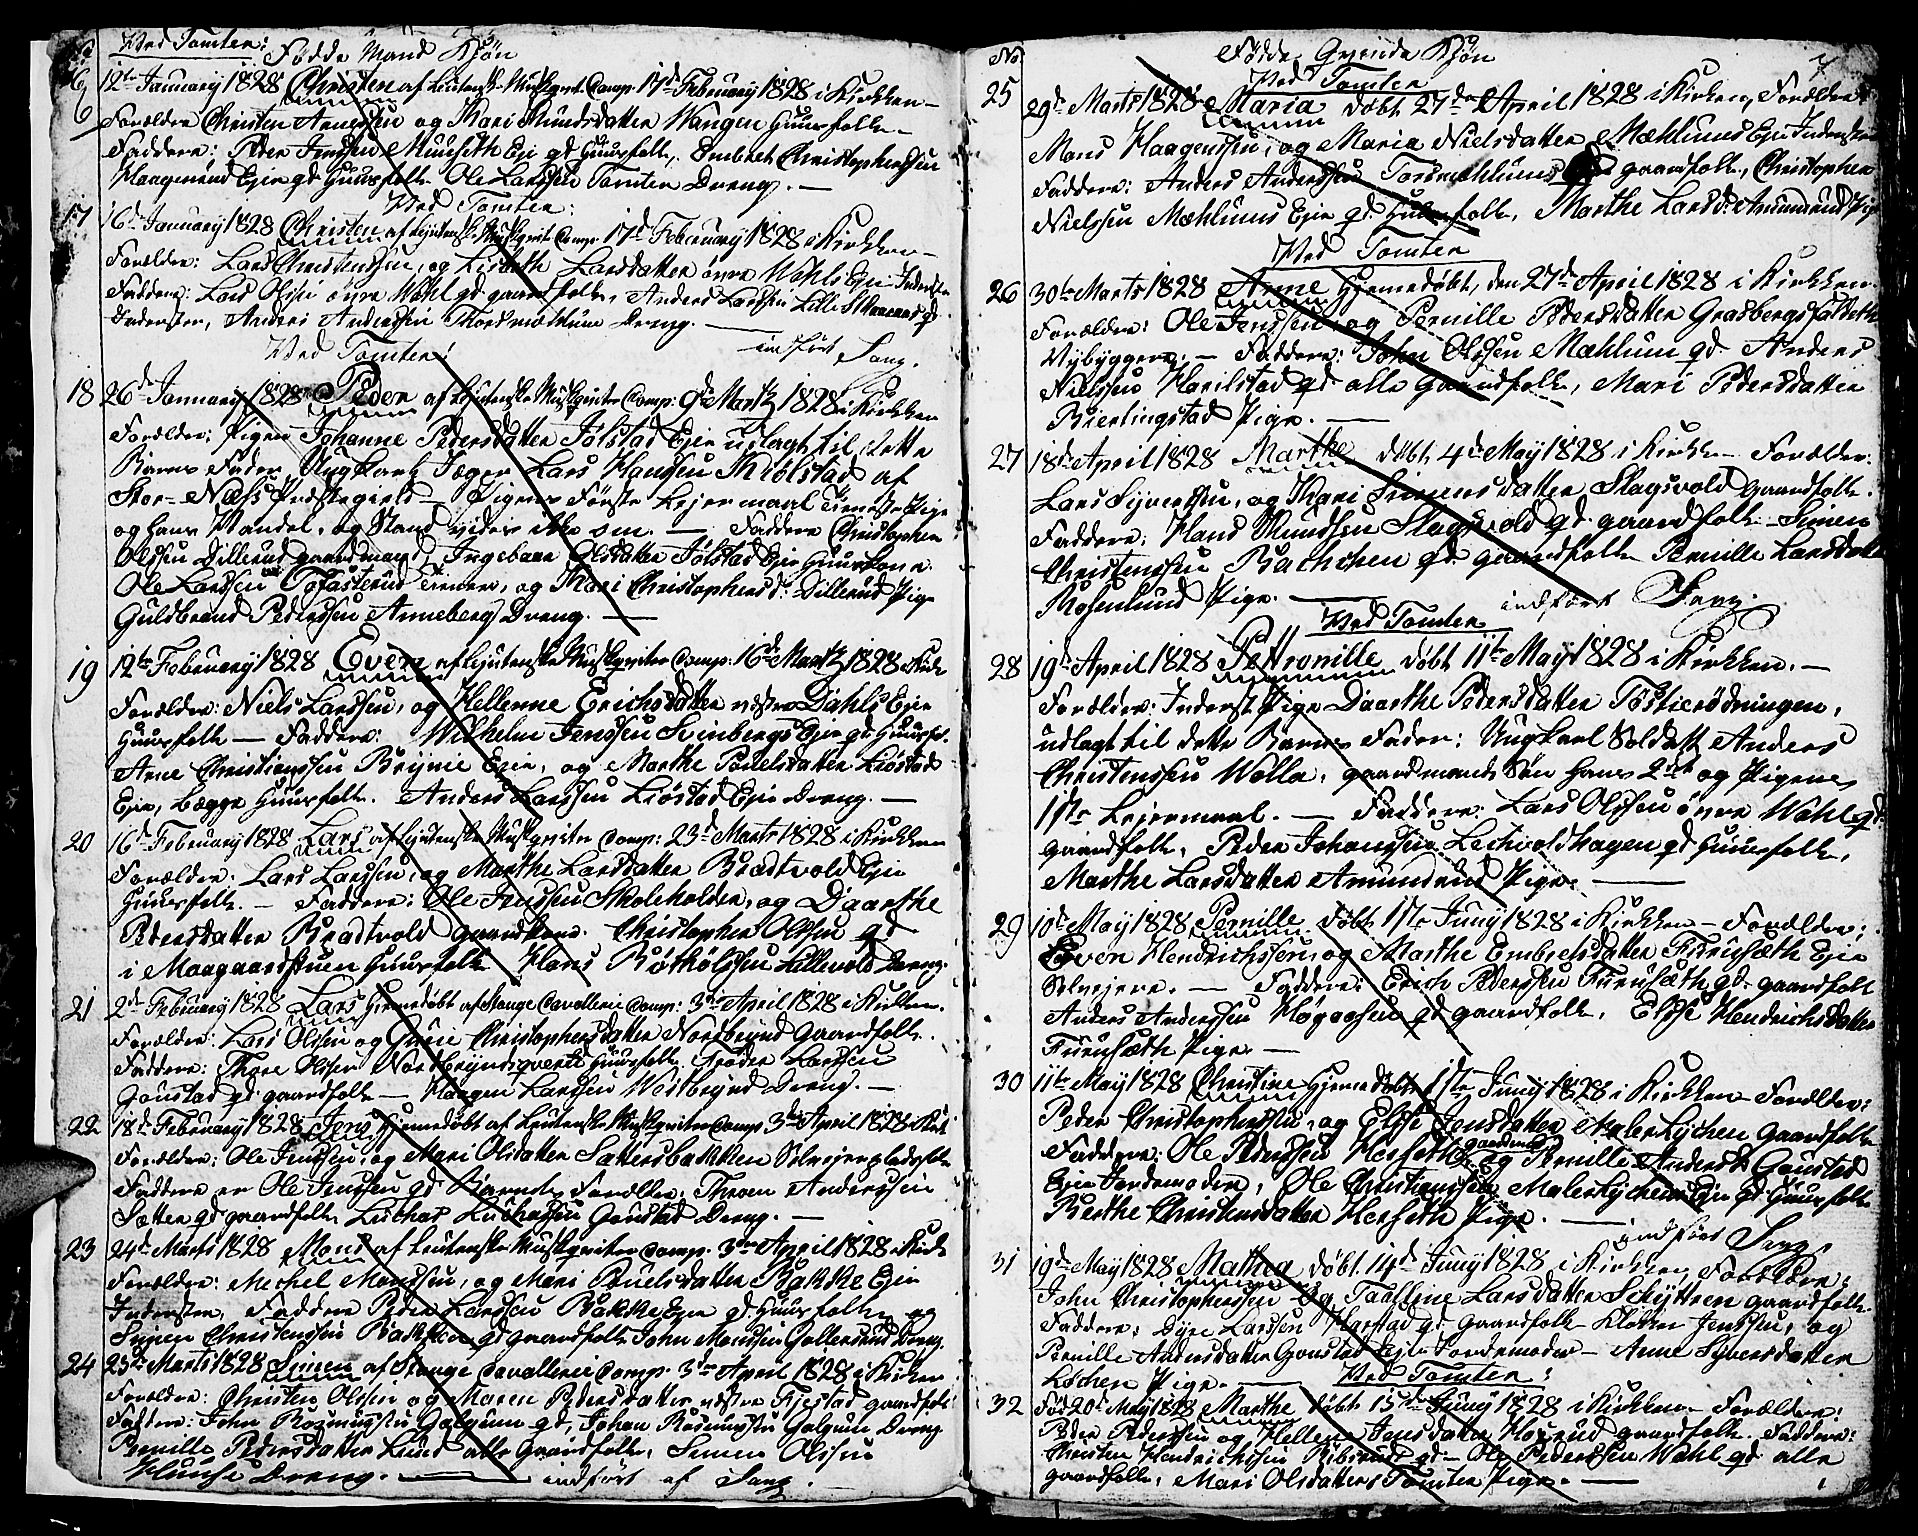 Ved Tomten: Fødde Mand Kjøn
16 12te January 1828 Christen af Leutenske Musqveter Comp: 17de February 1828 i Kirken
Forældre Christen Arnessen og Kari Amundsdatter Wangen Huusfolk
Faddere: Peder Jenssen Muuseth Eje gd Huusfolk, Embret Christophersen
Haagenrud Eje gd Huusfolk Ole Larssen Tomten Dreng.
Ved Tomten:
17 16de January 1828 Christen af Lejutenske Musqveter Comp: 17de February 1828 i Kirken
Forældre: Lars Christenssen, og Lisbeth Larsdatter øvre Wahls Eje Inderster
Faddere: Lars Olssen øvre Wahl gd gaardfolk, Anders Larssen Lille gd
Inderster, Anders Andersen Thordmæhlum Dreng.
Ved Tomten: indført Sang.
18 26de January 1828 Peder af Lejutenske Musqveter Comp: 9de Martz 1828 i Kirken
Forældre: Pigen Johanne Pedersdatter Jølstad Eje udlagt til dette
Barns Fader Ungkarl Jæger Lars Hansen Kiølstad af
Stor-Næss Præstegield Pigens Første Lejermaal tieneste Pige
og hans Handel, og Stand vides ikke om. Faddere Christopher
Olssen Dillerud gaardmand, Ingeborg Olsdatter Jølstad Eje Huuskone
Ole Larssen Tofasterud tiener, og Kari Christophersd: Dillerud Pige
Guldbrand Pederssen Anneberg Dreng.
19 12te February 1828 Even af Lejutenske Musqveter Comp: 16de Martz 1828 i Kirk
Forældre: Niels Larssen, og Hellenne Erichsdatter vestre Dahls Eje
Huusfolk Faddere: Wilhelm Jenssen Svinbergs Eje gd Huusfol.
Arne Christianssen Brynie Eje, og Marthe Poulsdatter Liøstad
Eje, begge Huusfolk. Anders Larssen Liøstad Eje Dreng.
20 16de February 1828 Lars af Lejutenske Musqveter Comp: 23de Marts 1828 i Kirken
Forældre: Lars Larssen, og Marthe Larsdatter Bradtvold Eje
Huusfolk. Faddere: Ole Jenssen Skoleholder, og Daarthe
Pedersdatter Bradtvold gaardkone. Christopher Olssen gd
i Maagaardstuen Huusfolk Hans Lillevold Dreng.
21 2de February 1828 Lars Hjemedøbt af Stange Cavallerie Comp: 3die April 1828 i Kirken.
Forældre: Lars Olssen og Gurie Christophersdatter Nordbrynd Gaardfolk.
Faddere: Thore Olssen Nordbryndsqvern Huusfolk, Peder Larssen
Goustad gd gaardfolk Haagen Larssen Westbrynd Dreng.
22 18de February 1828 Jens Hjemedøbt af Leutenske Musqveter Comp: 3die April 1828 i Kirk
Forældre: Ole Jenssen, og Mari Olsdatter Sættersbakken Selvejerpladsfolk
Faddere er Ole Jenssen gd Barnets Forældre: Thron Anderssen
Sætter gd gaardfolk Lucas Lucassen Goustad Dreng.
23 24de Marts 1828 Mons af Leutenske Musqveter Comp: 3die April 1828 i Kirk
Forældre: Michel Monssen, og Mari Poulsdatter Bakke Eje
Inderster, Faddere Peder Larssen Bakke Eje gd Huusfolk og
Simen Christenssen Bakken gd gaardfolk John Monssen Gollerud Dreng
24 25de Marts 1828 Simen af Stange Cavallerie Comp: 3die April 1828 i Kirken
Forældre: Christen Olssen og Maren Pedersdatter østre Fiestad gaardfolk
Faddere: John Galgum gd, Johan Galgum Dreng
Pernille Pedersdatter Lund alle Gaardfolk, Simen Olssen
Hunse Dreng. indført af Sang.
No Fødde Qvinde Kjøn 7
Ved Tomten
25 29de Marts 1828 Maria døbt 27de April 1828 i Kirken, Forældre
Mons Haagenssen, og Maria Nielsdatter Mæhlums Eje Inderster
Faddere: Anders Anderssen Tordmæhlums gaardfolk, Christopher
Nielssen Mæhlums Eje gd Huusfolk, Marthe Larsd: Amundrud Pige
Ved Tomten
26 30te Marts 1828 Anne Hjemedøbt, den 27de April 1828 i Kirken
Forældre: Ole Jenssen, og Pernille Pedersdatter Grasbergsfaldeth
Nybyggere. Faddere: John Olssen Mæhlum gd. Anders
Nielssen Harilstad gd alle Gaardfolk, Mari Pedersdatter
Bierlingstad Pige.
27 18de April 1828 Marthe døbt 4de May 1828 i Kirken Forældre:
Lars Syverssen, og Kari Simensdatter Slagsvold Gaardfolk.
Faddere: Hans Amundsen Slagsvold gd gaardfolk Simen
Christenssen Bachen gd gaardfolk Pernille Larsdatter
Rosenlund Pige. indført Sang.
Ved Tomten
28 19de April 1828 Petronille døbt 11te May 1828 i Kirken.
Forældre: Inderst Pige Daarthe Pedersdatter Tostierødningen,
udlagt til dette Barns Fader: Ungkarl Soldat Anders
Christenssen Wolla, gaardmands Søn hans 2det og Pigens
1ste Lejermaal. Faddere: Lars Olssen øvre Wahl gd
gaardfolk, Peder Johanssen Lechvoldhagen gd Huusfolk,
Marthe Larsdatter Amundrud Pige.
29 10de May 1828 Pernille døbt 1ste Juny 1828 i Kirken Forældre:
Even Hendrichssen, og Marthe Embretsdatter Furusæth Eje
Selvejere. Faddere: Erich Pederssen Furusæth gd gaardfolk
Anders Anderssen Høgaasen gd gaardfolk, Elsse Hendrichsdatter
Furusæth Pige
30 11te May 1828 Christine Hjemedøbt 1ste Juny 1828 i Kirken Forældre:
Peder Christopherssen, og Elsse Jensdatter Malerløchen Gaardfolk
Faddere: Ole Pederssen Herseth gaardmand og Pernille Andersd: Goustad
Eje Jordemoder, Ole Christianssen Malerløchens Eje gd Huusfolk
Berthe Christensdatter Herseth Pige. indført Sang
31 19de May 1828 Mathea døbt 14de Juny 1828 i Kirken, Forældre:
John Christopherssen og Taalline Larsdatter Schytteren gaardfolk.
Faddere: Dyre Larssen Harstad gd Gaardfolk Klokker Jenssen, og
Pernille Andersdatter Goustad Eje Jordemoder Anne Syversdatter
Løchen Pige. Ved Tomten:
32 Fød 20de May 1828 Marthe døbt 15de Juny 1828 i Kirken Forældre:
Peder Pederssen og Hellene Jensdatter Hørrud gaardfolk. Faddere:
Christen Hendrichssen Ribsrud gd Ole Pederssen Wahl gd alle
gaardfolk, Mari Olsdatter Tomten Pige.